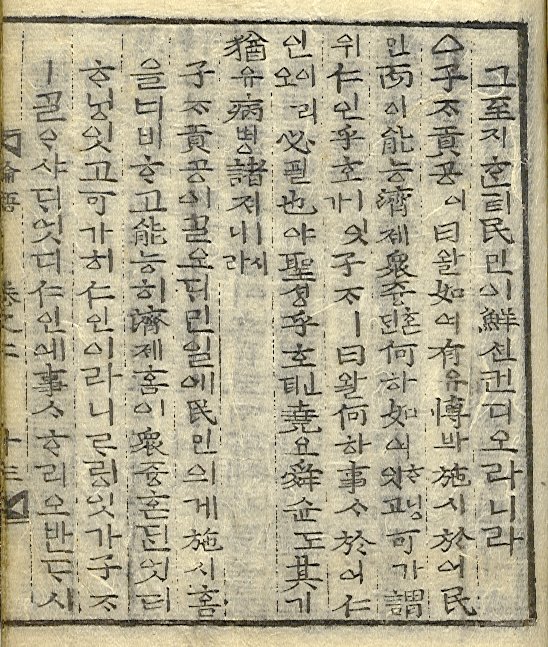 그至지ᄒᆞᆫ뎌民민이鮮션컨디오라니라
○子ᄌᆞ貢공이曰왈如여有유博박施시於어民
민而이能능濟졔衆즁혼ᄃᆡᆫ何하如여ᄒᆞ닝잇고可가謂
위仁인乎호ㅣ잇가子ᄌᆞㅣ曰왈何하事ᄉᆞ於어仁
인이리오必필也야聖셩乎호ᅟᅵᆫ뎌堯요舜슌도其기
猶유病병諸져ㅣ시니라
子ᄌᆞ貢공이ᄀᆞᆯ오ᄃᆡ만일에民민의게施시홈
을너비ᄒᆞ고能능히濟졔홈이衆즁혼ᄃᆡᆫ엇더
ᄒᆞ닝잇고可가히仁인이라니ᄅᆞ링잇가子ᄌᆞ
ㅣᄀᆞᆯᄋᆞ샤ᄃᆡ엇디仁인에事ᄉᆞᄒᆞ리오반ᄃᆞ시
論語 卷之二 十三